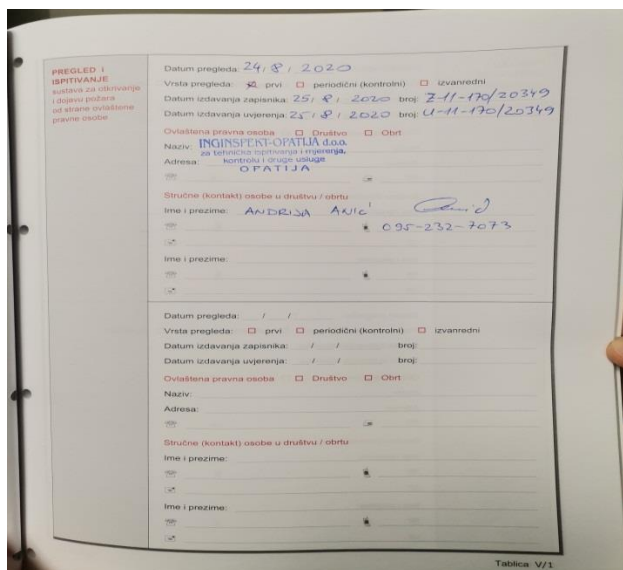 PREGLED I
ISPITIVANJE
sustava za otkrivanje
i dojavu požara
od strane ovlaštene
pravne osobe
Datum pregleda: 24, 8, 2020
Vrsta pregleda: prvi periodični (kontrolni) izvanredni
Datum izdavanja zapisnika: 25, 8, 2020 broj: Z-11-170/20349
Datum izdavanja uvjerenja: 25, 8, 2020 broj: U-11-170/20349
Ovlaštena pravna osoba Društvo Obrt
Naziv: INGINSPEKT-OPATIJA d.o.o.
za tehnička ispitivanja i mjerenja,
Adresa: kontrolu i druge usluge
OPATIJA
Stručne (kontakt) osobe u društvu / obrtu
Ime i prezime: ANDRIJA ANIĆ
095-232-7073
Ime i prezime:
Datum pregleda: / /
Vrsta pregleda: prvi periodični (kontrolni) izvanredni
Datum izdavanja zapisnika: / / broj:
Datum izdavanja uvjerenja: / / broj:
Ovlaštena pravna osoba Društvo Obrt
Naziv:
Adresa:
Stručne (kontakt) osobe u društvu / obrtu
Ime i prezime:
Ime i prezime:
Tablica V/1